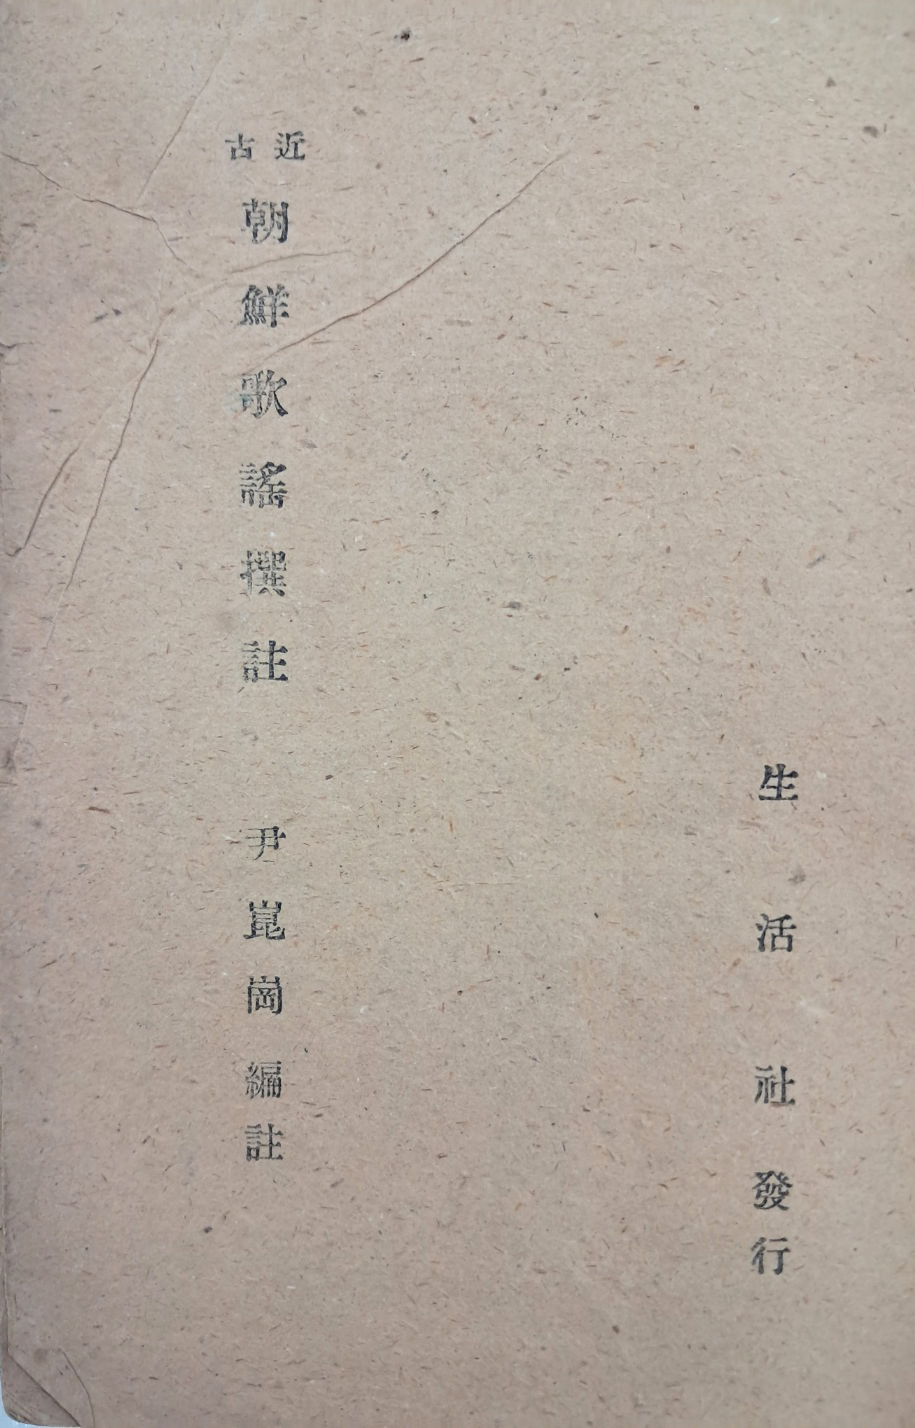 生活社發行
近古
朝鮮歌謠撰註
尹崑崗編註